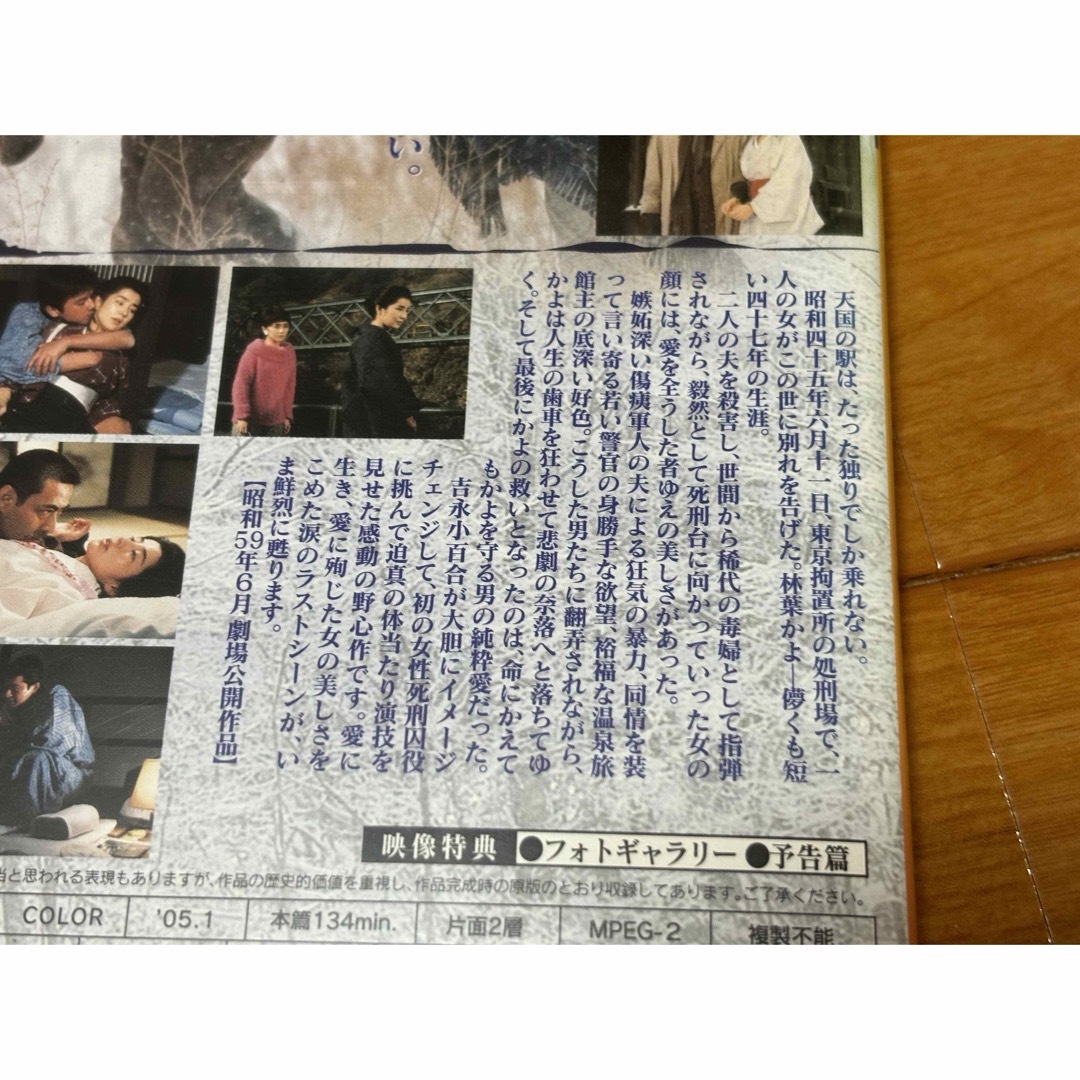 い。
天国の駅は、たった独りでしか乗れない。
昭和四十五年六月十一日、東京拘置所の処刑場で、一
人の女がこの世に別れを告げた。林葉かよ―儚くも短
い四十七年の生涯。
二人の夫を殺害し、世間から稀代の毒婦として指弾
されながら、毅然として死刑台に向かっていった女の
顔には、愛を全うした者ゆえの美しさがあった。
嫉妬深い傷痍軍人の夫による狂気の暴力、同情を装
って言い寄る若い警官の身勝手な欲望、裕福な温泉旅
館主の底深い好色。こうした男たちに翻弄されながら、
かよは人生の歯車を狂わせて悲劇の奈落へと落ちてゆ
く。そして最後にかよの救いとなったのは、命にかえて
もかよを守る男の純粋愛だった。
吉永小百合が大胆にイメージ
チェンジして、初の女性死刑囚役
に挑んで迫真の体当たり演技を
見せた感動の野心作です。愛に
生き、愛に殉じた女の美しさを
こめた涙のラストシーンが、い
ま鮮烈に甦ります。
【昭和59年6月劇場公開作品】
映像特典 ●フォトギャラリー ●予告篇
当と思われる表現もありますが、作品の歴史的価値を重視し、作品完成時の原版のとおり収録してあります。ご了承ください。
COLOR '05.1 本篇134min. 片面2層 MPEG-2 複製不能